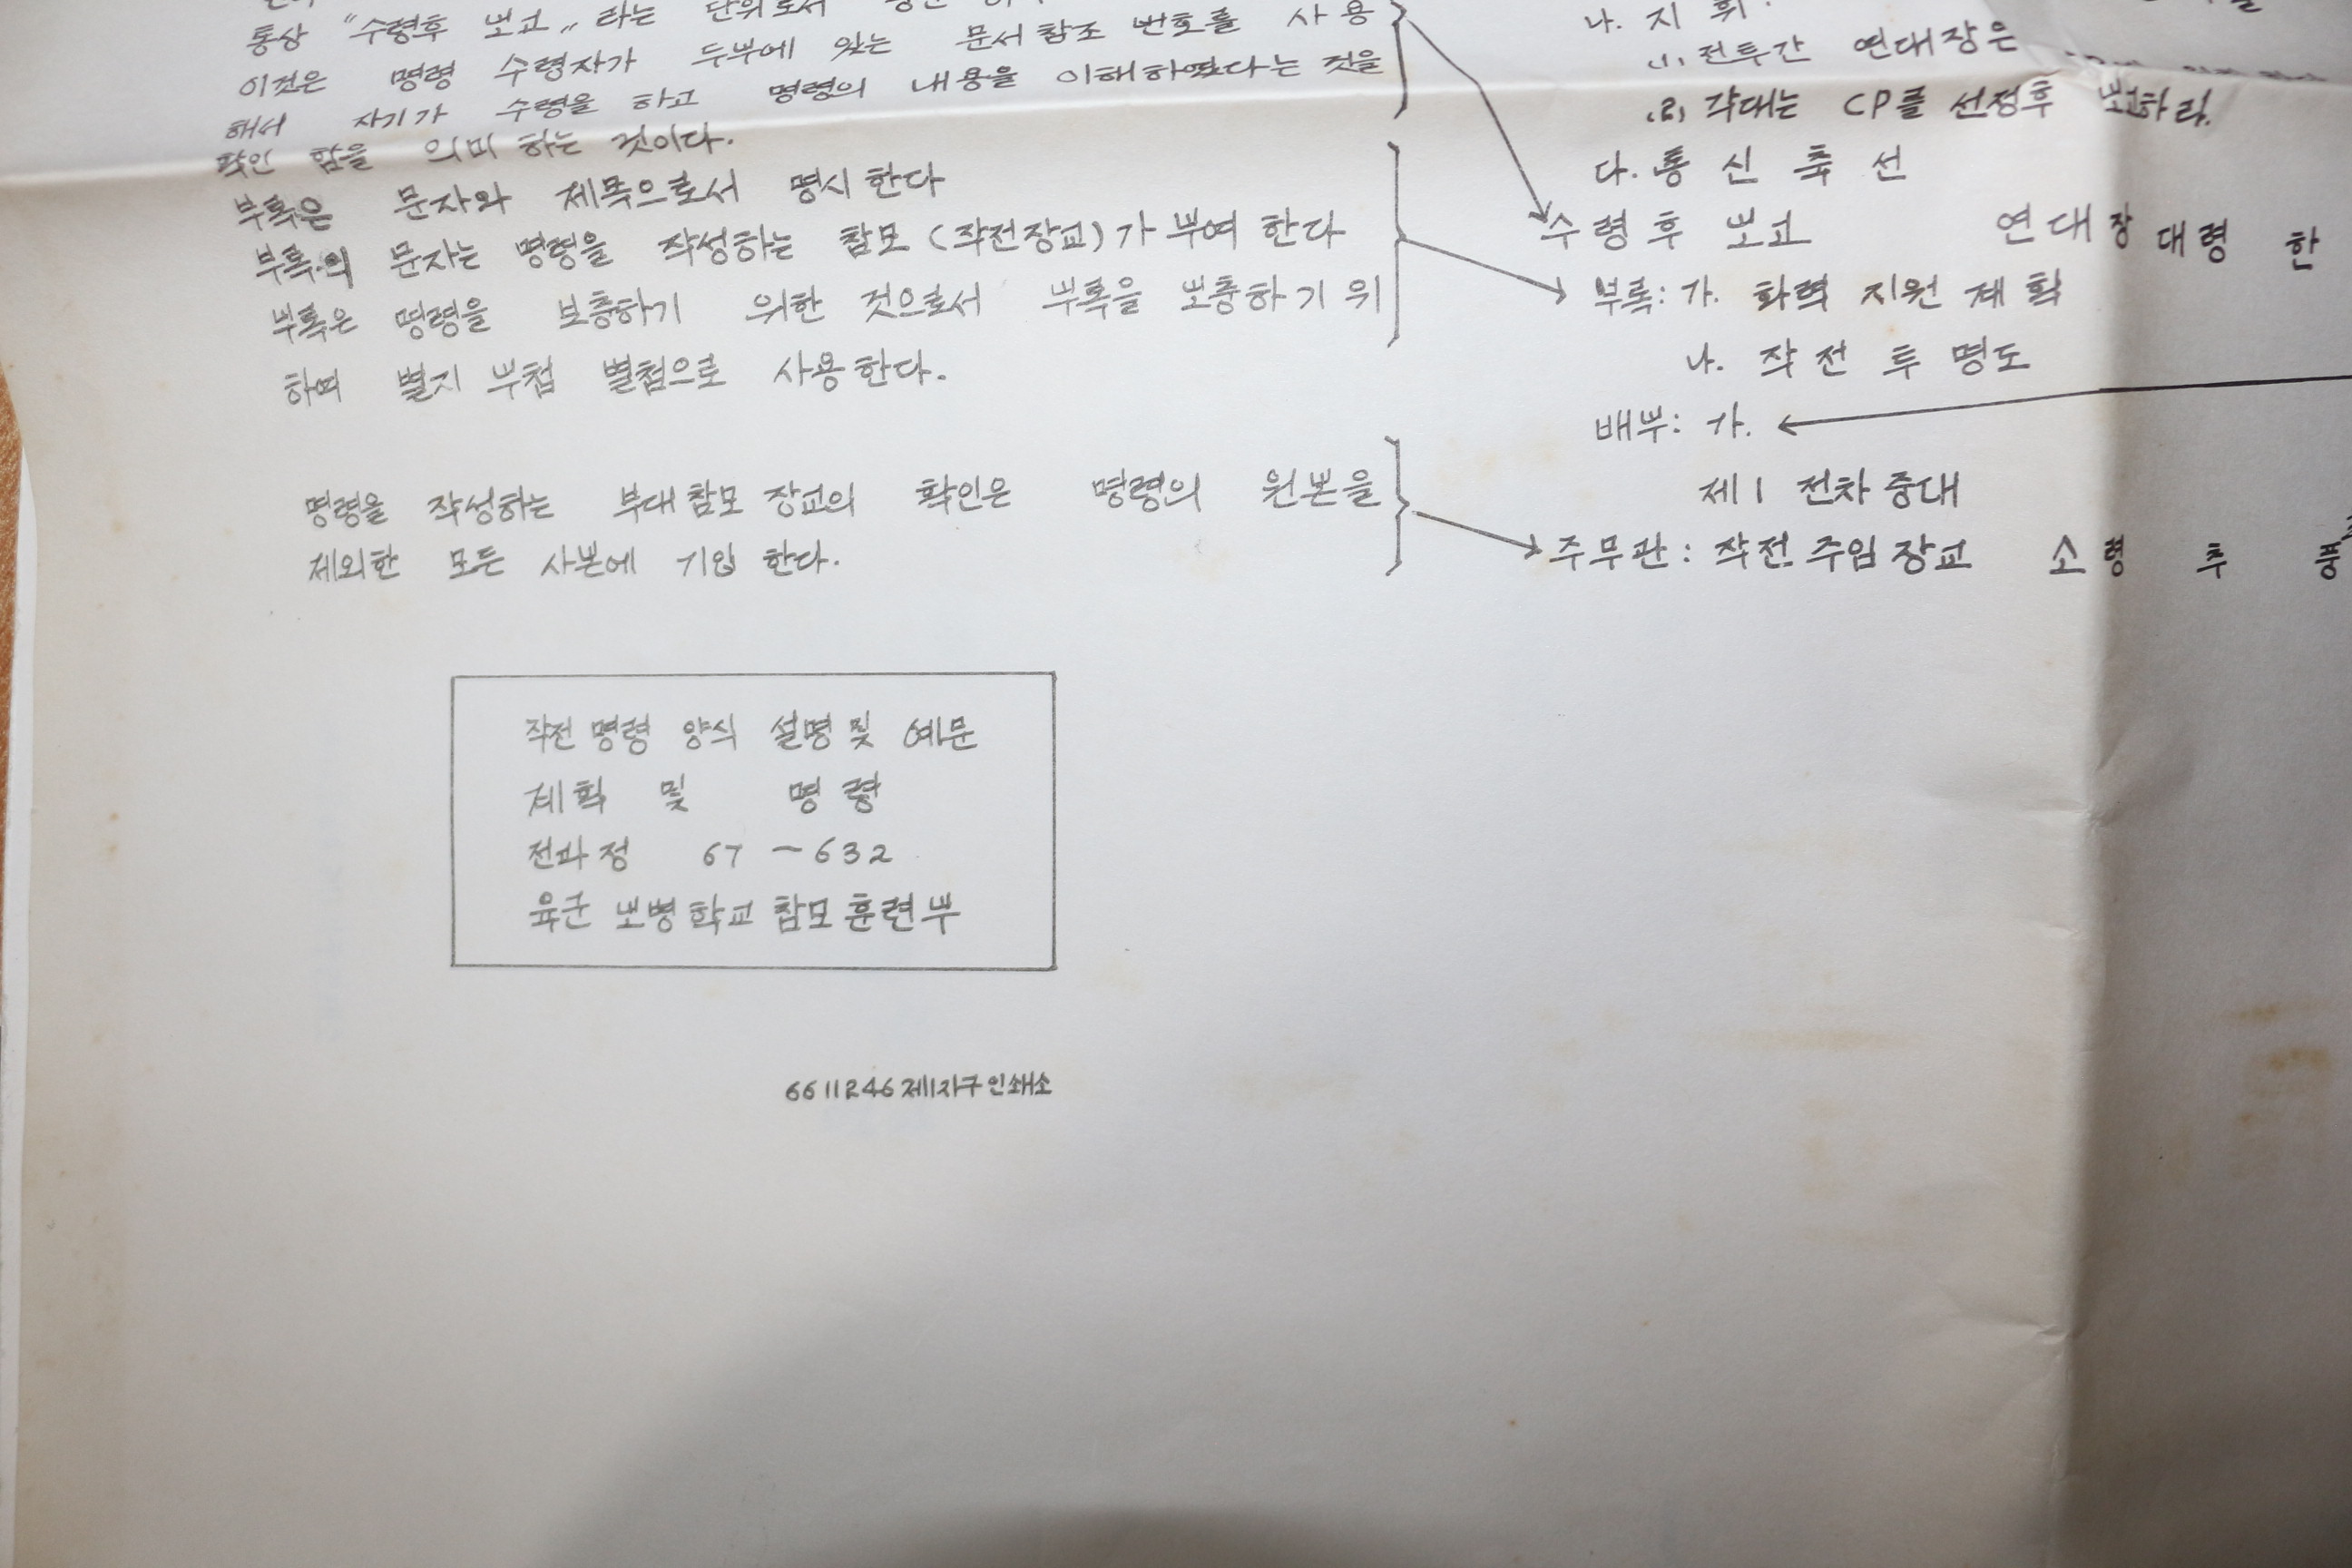 통상 "수령후 보고" 라는 단위로서
이것은 명령 수령자가 두부에 있는 문서 참조 번호를 사용
해서 자기가 수령을 하고 명령의 내용을 이해하였다는 것을
확인 함을 의미 하는 것이다.
부록은 문자와 제목으로서 명시 한다
부록의 문자는 명령을 작성하는 참모 (작전장교)가 부여 한다
부록은 명령을 보충하기 위한 것으로서 부록을 보충하기 위
하여 별지 부첩 별첨으로 사용 한다.
명령을 작성하는 부대 참모 장교의 확인은 명령의 원본을
제외한 모든 사본에 기입 한다.
작전 명령 양식 설명 및 예문
계획 및 명령
전과정 67-632
육군 보병 학교 참모 훈련부
6611246 제1지구 인쇄소
나. 지휘
(1) 전투간 연대장은
(2) 각대는 CP를 선정후 보고하라.
다. 통신 축선
수령후 보고 연대장 대령 한
부록: 가. 화력 지원 계획
나. 작전 투명도
배부: 가.
제1 전차 중대
주무관: 작전 주임 장교 소령 추